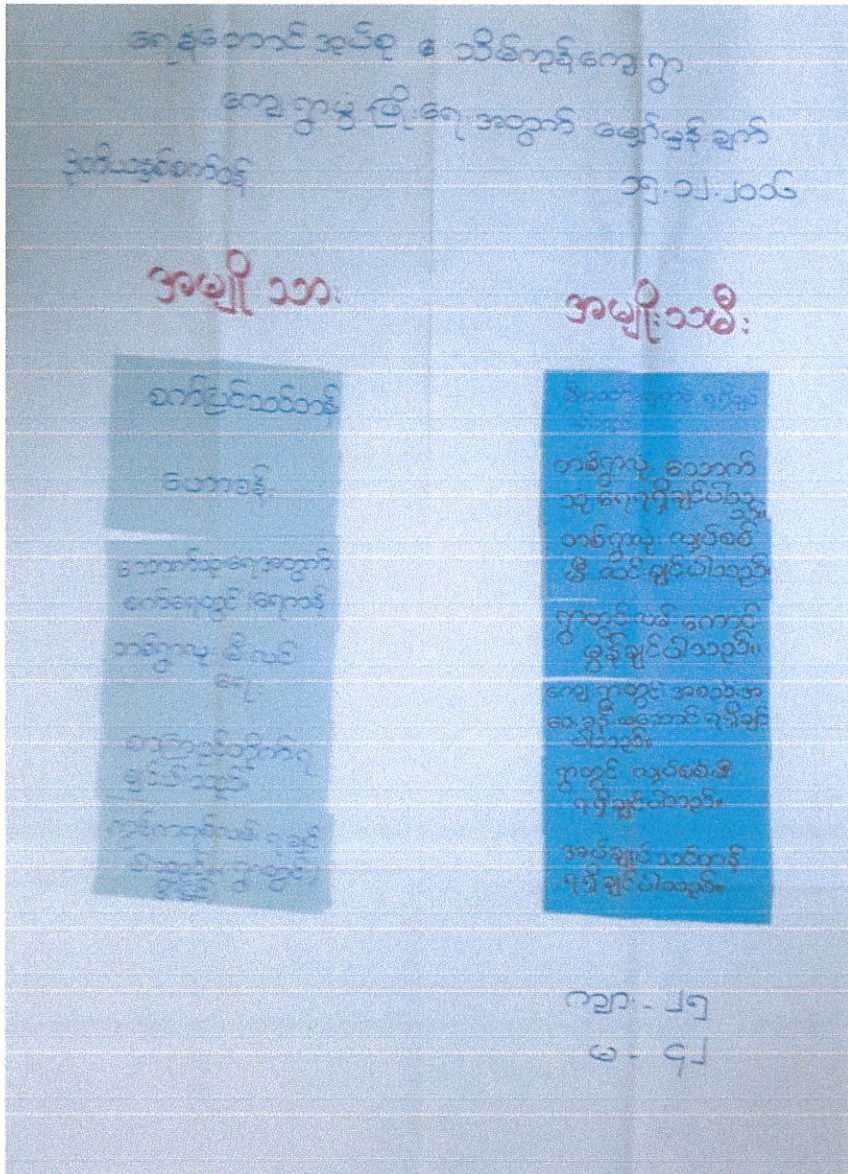 ရေနံ့ဘောင်အုပ်စု ၊ သိမ်ကုန်းကျေးရွာ
ကျေးရွာဖွံ့ဖြိုးရေးအတွက် မျှော်မှန်းချက်
ဒုတိယနှစ်စက်ဝန်း
၁၅.၁၂.၂၀၁၆
အမျိုးသား
စက်ပြင်သင်တန်း
ဟောခန်း
သောက်သုံးရေအတွက်
စက်ရေတွင်း ၊ရေကန်
တစ်ရွာလုံး မီးလင်း
ရေး
စာကြည့်တိုက်ရ
ချင်ပါသည်
ကွင်းကရစ်လမ်း ရချင်
ပါသည်။
အမျိုးသမီး
တစ်ရွာလုံး သောက်
သုံးရေရရှိချင်ပါသ
ည်။
တစ်ရွာလုံး လျှပ်စစ်
မီး လင်းချင်ပါသည်။
ရွာတွင်းလမ်း ကောင်း
မွန်ချင်ပါသည်။
ကျေးရွာတွင် အစည်းအ
ဝေးခန်းမဆောင် ရရှိချင်
ပါသည်။
ရွာတွင်း လျှပ်စစ်မီး
ရရှိချင်ပါသည်။
အပ်ချုပ်သင်တန်း
ရရှိချင်ပါသည်။
ကျား - ၂၅
မ - ၄၂